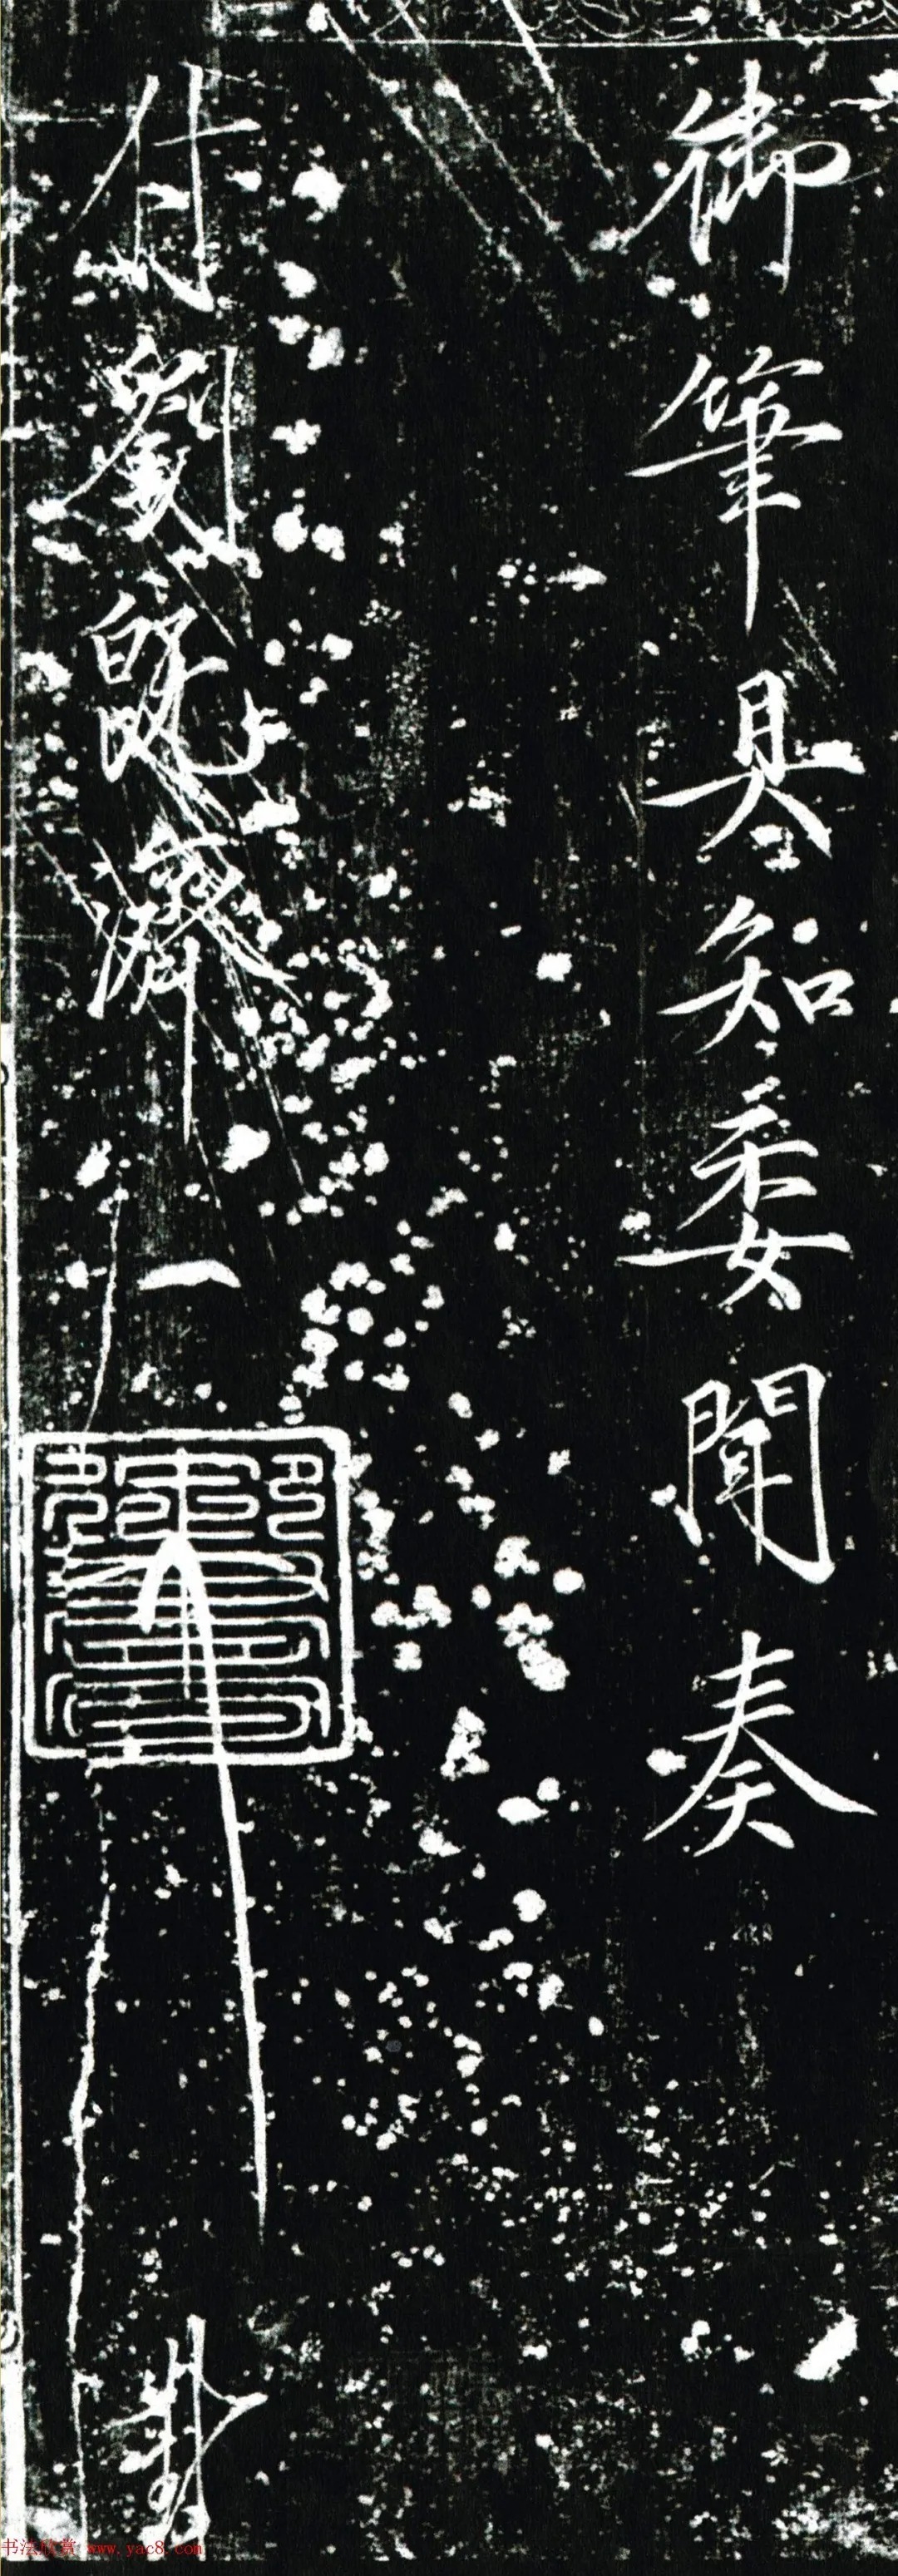 御筆具知委聞奏
付劉既濟
书法欣赏 www.yac8.com